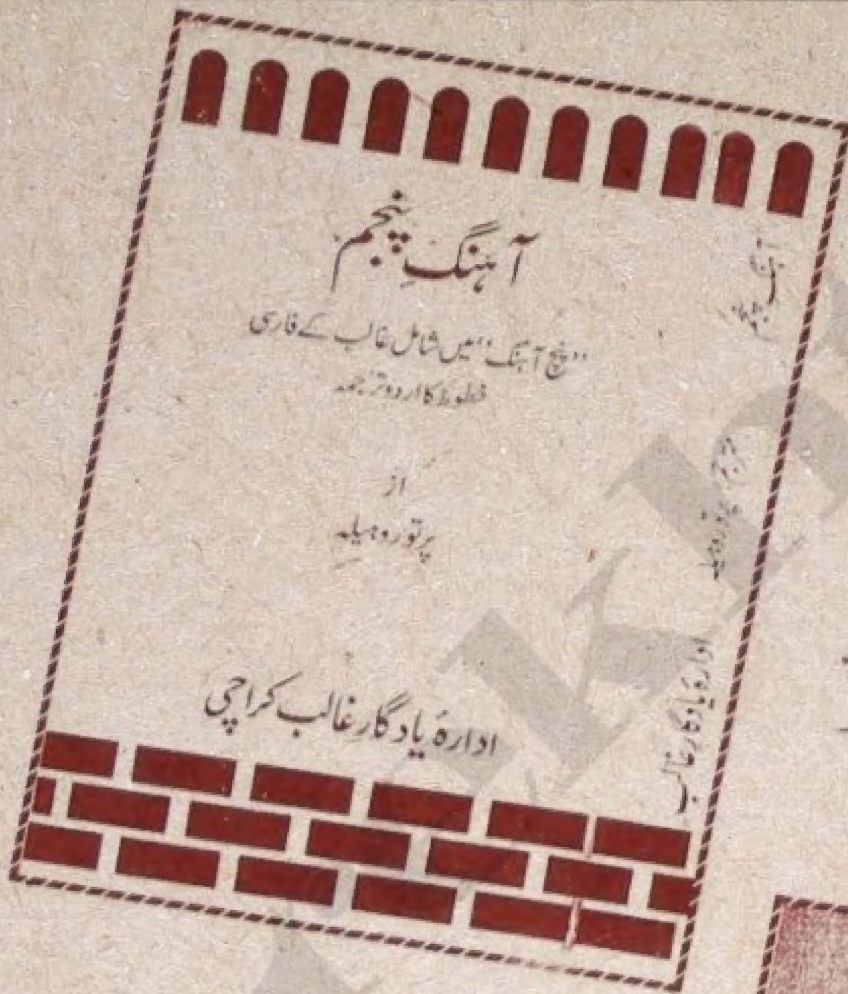 آہنگِ پنجم
"پنج آہنگ" میں شامل غالب کے فارسی
خطوط کا اردو ترجمہ
از
پرتو روہیلہ
ادارۂ یادگارِ غالب کراچی
پرتو روہیلہ
ادارۂ یادگارِ غالب